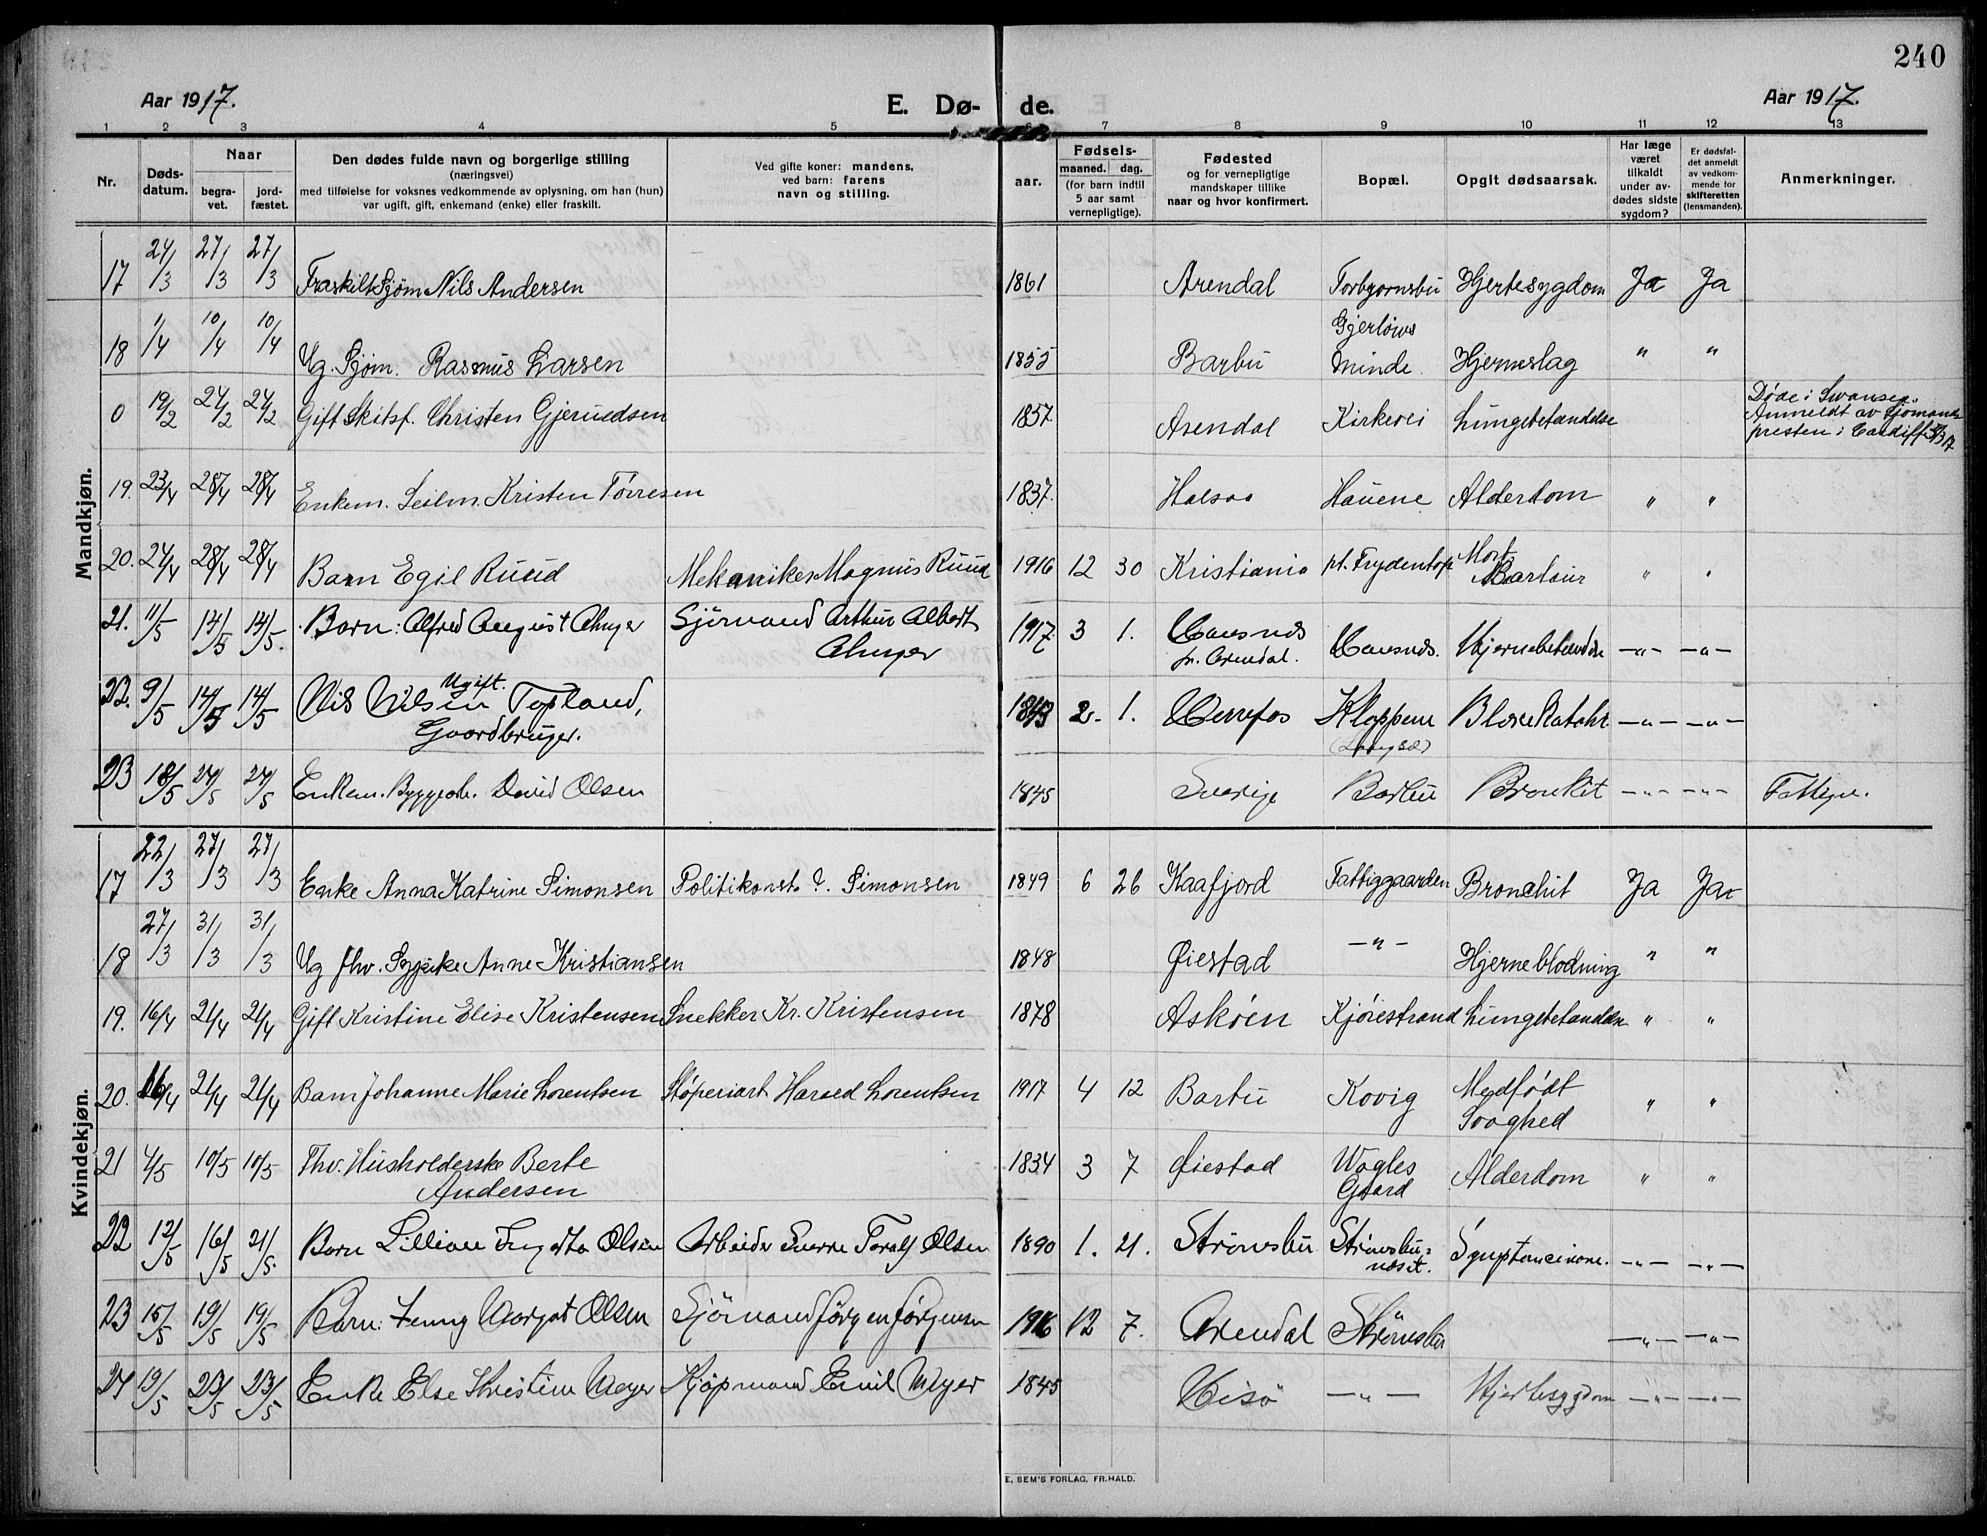 240
Aar 1917.
E. Dø- de.
Aar 1917.
1 2 3 4 5 6 7 8 9 10 11 12 13
Nr.
Døds-
datum.
Naar
begra-
vet.
jord-
fæstet.
Den dødes fulde navn og borgerlige stilling
(næringsvei)
med tilføielse for voksnes vedkommende av oplysning, om han (hun)
var ugift, gift, enkemand (enke) eller fraskilt.
Ved gifte koner: mandens,
ved barn: farens
navn og stilling.
Fødsels-
aar.
maaned. dag.
(for barn indtil
5 aar samt
vernepligtige).
Fødested
og for vernepligtige
mandskaper tillike
naar og hvor konfirmert.
Bopæl.
Opgit dødsaarsak.
Har læge
været
tilkaldt
under av-
dødes sidste
sygdom?
Er dødsfal-
det anmeldt
av vedkom-
mende for
skifteretten
(lensmanden).
Anmerkninger.
Mandkjøn.
17 24/3 27/3 27/3 Fraskilt Sjøm Nils Andersen 1861 Arendal Torbjørnsbu Hjertesygdom Ja Ja
18 1/4 10/4 10/4 Ug. Sjøm. Rasmus Larsen 1855 Barbu Gjerløws
Minde Hjerneslag " "
0 19/2 24/2 24/2 Gift Skibsf. Christen Gjeruldsen 1857. Arendal Kirkevei Lungebetændelse Døde i Swansea.
Anmeldt av Sjømands
presten i Cardiff
19. 23/4 28/4 28/4 Enkem. Seilm. Kristen Tørresen 1837. Halsaa Hauene Alderdom " "
20. 24/4 28/4 28/4 Barn Egil Ruud Mekaniker Magnus Ruud 1916 12 30 Kristiania pt. Frydentop " "
21. 11/5 14/5 14/5. Barn: Alfred August Sjømand Arthur Albert
1917. 3 1. Hjernebetændelse -"- -"-
22. 9/5 14/5 14/5 Nils Nilsen Ugift. Topland,
Gaardbruger. 1843 2. 1. Herefos Kloppene -"- -"-
23 18/5 24/5 24/5 Enkem. David Olsen 1845 Sverige Barbu Bronkit -"- -"- Fattigv.
Kvindekjøn.
17 22/3 27/3 27/3 Enke Anna Katrine Simonsen Politikonst. Simonsen 1849 6 26 Kaafjord Fattiggaarden Bronchit Ja Ja
18 27/3 31/3 31/3 Ug fhv. Sypike Anne Kristiansen 1848 Øiestad -"- Hjerneblødning " "
19. 16/4 21/4 21/4 Gift Kristine Elise Kristensen Snekker Kr. Kristensen 1878 Askøen Kjøiestrand Lungebetændelse " "
20. 16/4 21/4 21/4 Barn Johanne Marie Lorentsen Støperiarb. Harald Lorentsen 1917 4 12 Barbu Kovig Medfødt
Svaghed " "
21 4/5 10/5 10/5 Fhv. Husholderske Berte
Andersen 1834 3 7 Øiestad Wogles
Gaard Alderdom " "
22 12/5 16/5 21/5. Barn Lillian Ingerta Olsen Arbeider Sverre Toralf Olsen 1890 1. 21. Strømsbu Strømsbu-
næset. -"- -"-
23 15/5 19/5 19/5 Barn: Jenny Margot Olsen Sjømand Jørgen Jørgensen 1916 12 7. Arendal Strømsbu -"- -"-
24 19/5 23/5 23/5 Enke Else Kristine Meyer Kjøpmand Emil Meyer 1845 Hisø -"- Hjertesygdom -"- -"-
E. SEM'S FORLAG, FR.HALD.